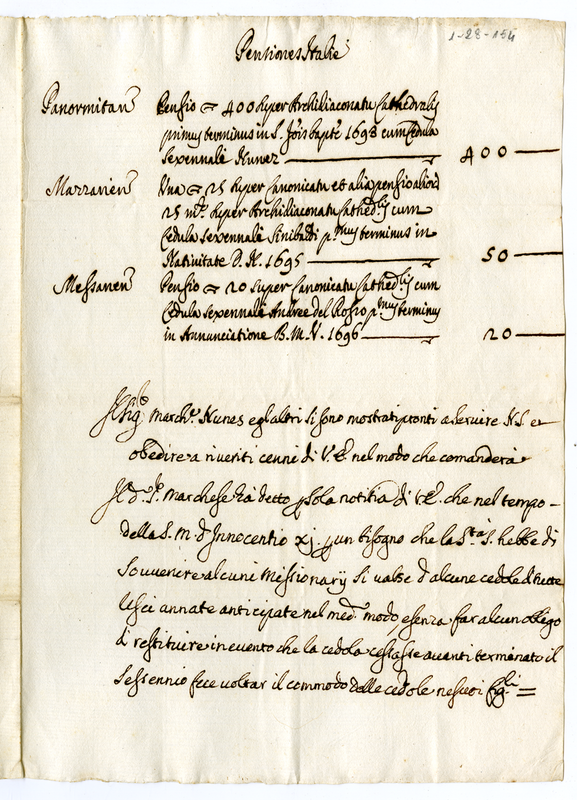 1-28-154
Pensiones Italie
Panormitan Pensio = 400 super Archidiaconatu Cathedralis
primus terminus in S. Jois bapte 1698 cum Cedula
sexennale Nunez 400
Mazzarien Una = 25 super Canonicatu et alia pensio alior
25 super Archidiaconatu Cathedlis cum
Cedula sexennale Sinibaldi pmus terminus in
Nativitate D. N. 1695 50
Messanen Pensio = 20 super Canonicatu Cathedlis cum
Cedula sexennale Andree del Rosso pmus terminus
in Annunciatione B. M. V. 1696 20
Il Sig.e March.e Nunes e gl'altri si sono mostrati pronti a servire N.S. et
obedire a riveriti cenni di V.E. nel modo che comanderà
Il d.o S.r Marchese hà detto p sola notitia di V.E. che nel tempo
della S. M. d'Innocentio xj. p un bisogno che la S.tà S. hebbe di
souvenire alcuni Missionarij si valse d'alcune cedole
sei annate anticipate nel med.o modo, e senza far alcun obligo
di restituire in evento che la cedola cessasse avanti terminato il
sessennio fece voltar il commodo delle cedole ne suoi figli =